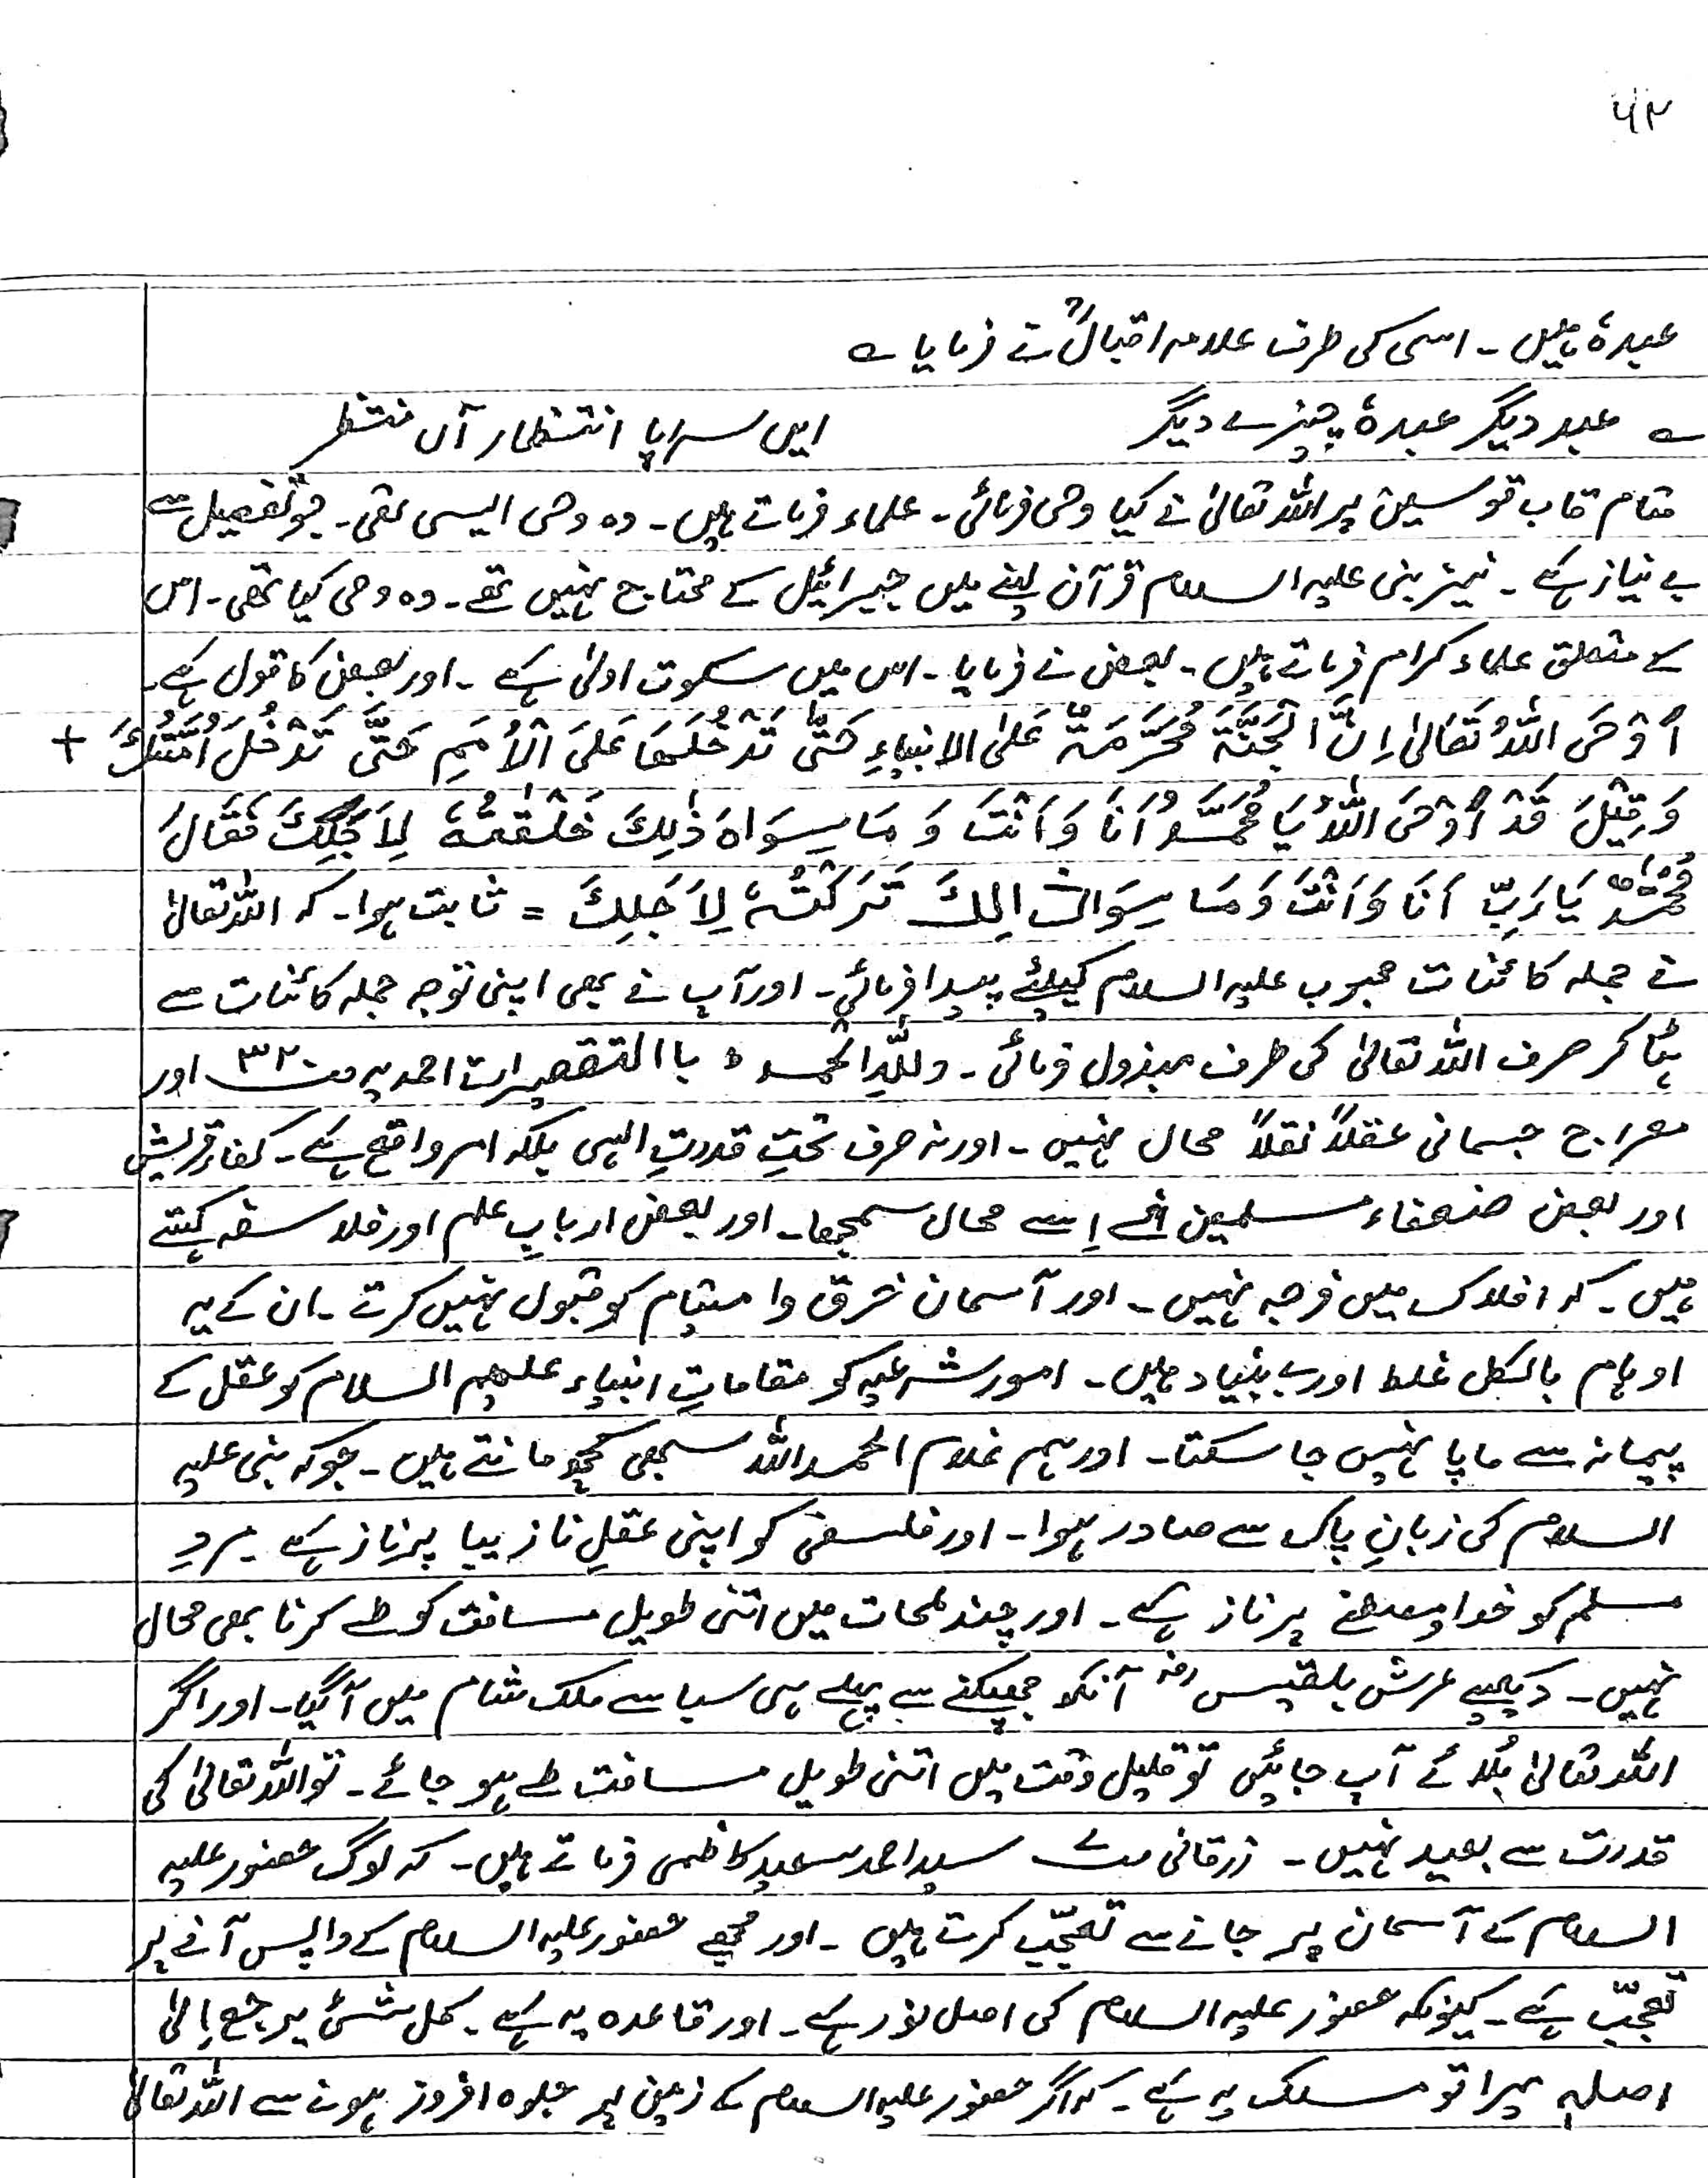 ۶۲
عبدہٗ ہیں۔ اسی کی طرف علامہ اقبالؒ نے فرمایا ؎
؎ عبد دیگر عبدہٗ چیزے دیگر ایں سراپا انتظار آں منتظر
مقام قاب قوسین پر اللہ تعالیٰ نے کیا وحی فرمائی۔ علماء فرماتے ہیں۔ وہ وحی ایسی تھی۔ جو تفصیل سے
بے نیاز ہے۔ نیز نبی علیہ السلام قرآن لینے میں جبرائیل کے محتاج نہیں تھے۔ وہ وحی کیا تھی۔ اس
کے متعلق علماء کرام فرماتے ہیں۔ بعض نے فرمایا۔ اس میں سکوت اولیٰ ہے۔ اور بعض کا قول ہے۔
أَوْحَى اللّٰهُ تَعَالىٰ اِنَّ الْجَنَّةَ مُحَرَّمَةٌ عَلىٰ الانبیاءِ حَتّٰى تَدْخُلَهَا عَلىَ الْأُمَمِ حَتّٰى تَدْخُلَ اُمَّتُكَ +
وَقِيْلَ قَدْ أَوْحَى اللّٰهُ يَا مُحَمَّدُ اَنَا وَاَنْتَ وَمَا سِوَاهَ ذٰلِكَ خَلَقْتُهٗ لِاَجَلِكَ فَقَالَ
مُحَمَّدٌ يَا رَبِّ اَنَا وَاَنْتَ وَمَا سِوَا ذالِكَ تَرَكْتُهٗ لِاَجَلِكَ = ثابت ہوا۔ کہ اللہ تعالیٰ
نے جملہ کائنات محبوب علیہ السلام کیلئے پیدا فرمائی۔ اور آپ نے بھی اپنی توجہ جملہ کائنات سے
ہٹا کر صرف اللہ تعالیٰ کی طرف مبذول فرمائی۔ وللّٰہ الحمد باالتقصیرات احمدیہ ص ۳۲۰ اور
معراج جسمانی عقلاً نقلاً محال نہیں۔ اور نہ صرف تحتِ قدرتِ الہی بلکہ امر واقع ہے۔ کفار قریش
اور بعض ضعفاء مسلمین نے اِسے محال سمجھا۔ اور بعض اربابِ علم اور فلاسفہ کہتے
ہیں۔ کہ افلاک میں فرجہ نہیں۔ اور آسمان خرق وا لتیام کو قبول نہیں کرتے۔ ان کے یہ
اوہام بالکل غلط اور بے بنیاد ہیں۔ امور شرعیہ کو مقاماتِ انبیاء علیہم السلام کو عقل کے
پیمانہ سے ماپا نہیں جا سکتا۔ اور ہم غلام الحمد اللہ سبھی کچھ مانتے ہیں۔ جو کہ نبی علیہ
السلام کی زبانِ پاک سے صادر ہوا۔ اور فلسفی کو اپنی عقلِ نازیبا پر ناز ہے۔ مردِ
مسلم کو خدا و مصطفے پر ناز ہے۔ اور چند لمحات میں اتنی طویل مسافت کو طے کرنا بھی محال
نہیں۔ دیکھیے عرش بلقیس رضہ آنکھ جھپکنے سے پہلے ہی سبا سے ملک شام میں آ گیا۔ اور اگر
اللہ تعالیٰ بُلائے آپ جائیں تو قلیل وقت میں اتنی طویل مسافت طے ہو جائے۔ تو اللہ تعالیٰ کی
قدرت سے بعید نہیں۔ زرقانی سید احمد سعید کاظمی فرماتے ہیں۔ کہ لوگ حضور علیہ
السلام کے آسمان پر جانے سے تعجّب کرتے ہیں۔ اور مجھے حضور علیہ السلام کے واپس آنے پر
تعجّب ہے۔ کیونکہ حضور علیہ السلام کی اصل نور ہے۔ اور قاعدہ یہ ہے۔ کل شئ یرجع إلیٰ
اصلہ میرا تو مسلک یہ ہے۔ کہ اگر حضور علیہ السلام کے زمین پر جلوہ افروز ہونے سے اللہ تعالیٰ